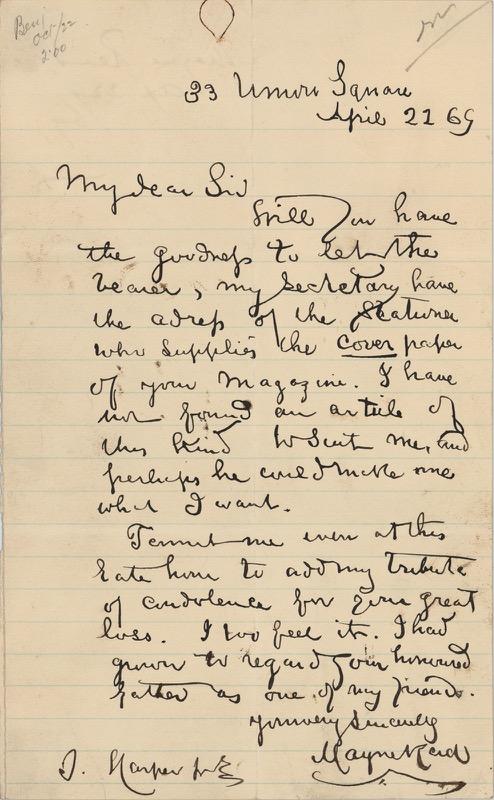 Benj
Oct/22
2.00
33 Union Square
April 21 69
My dear Sir
Will you have
the goodness to let the
bearer, my Secretary have
the adress of the Stationer
who supplies the cover paper
of your Magazine. I have
not found an article of
this kind to suit me, and
perhaps he could make me
what I want.
Permit me even at this
late hour to add my tribute
of condolence for your great
loss. I too feel it. I had
grown to regard your honoured
father as one of my friends.
Yours very Sincerely
Mayne Reid
J. Harper Jr